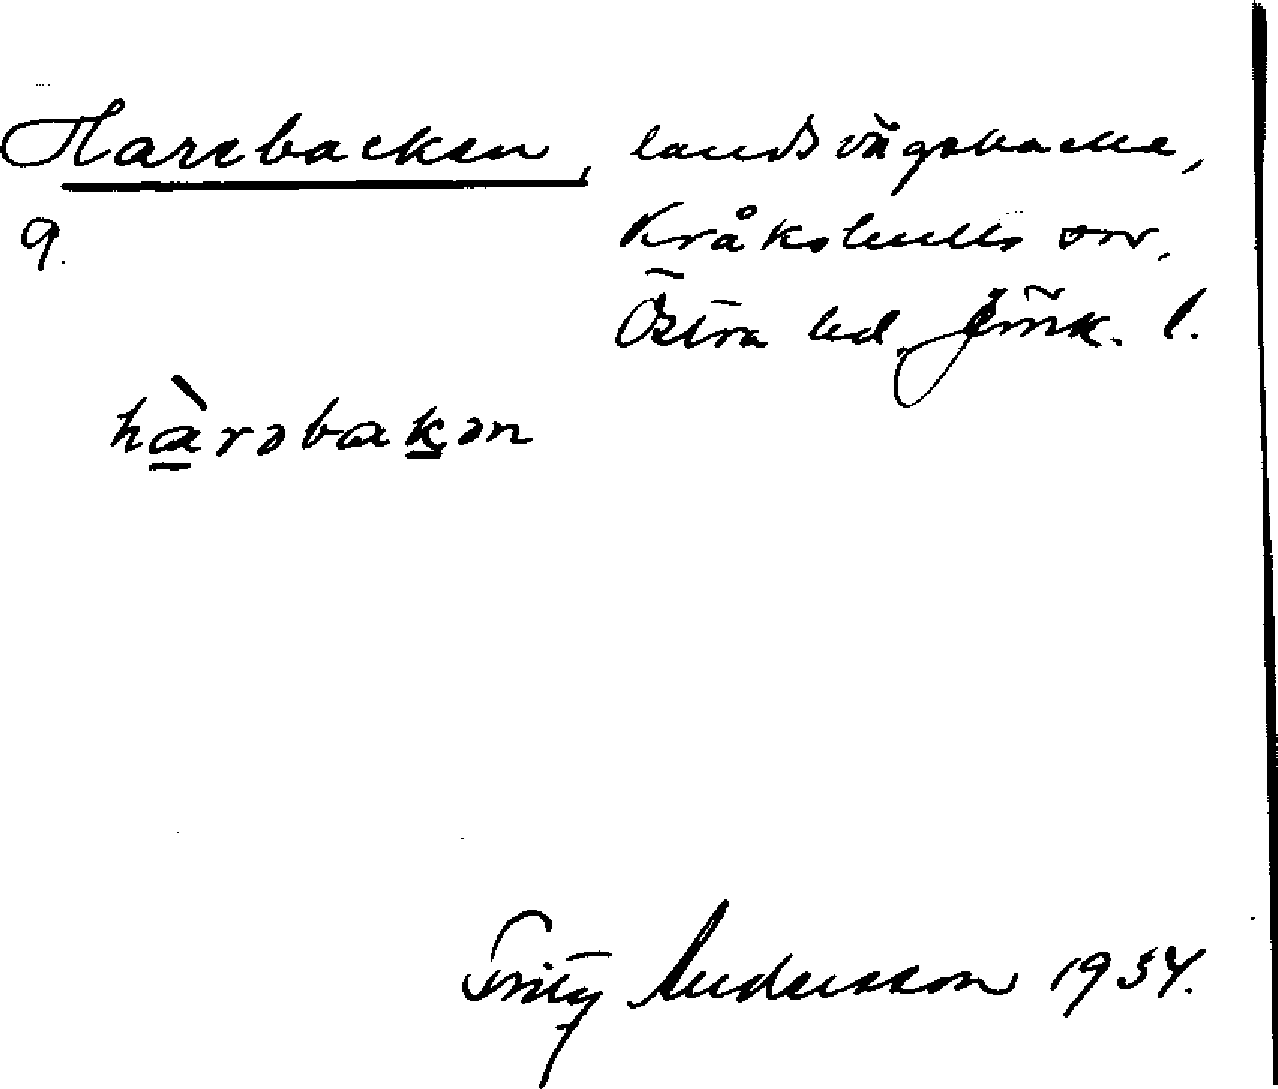 Harebacken, landsvägsbacke,
9. Kråkshults sn,
Östra hd, Jönk. l.
hàrəbakən
Fritz Andersson 1934.